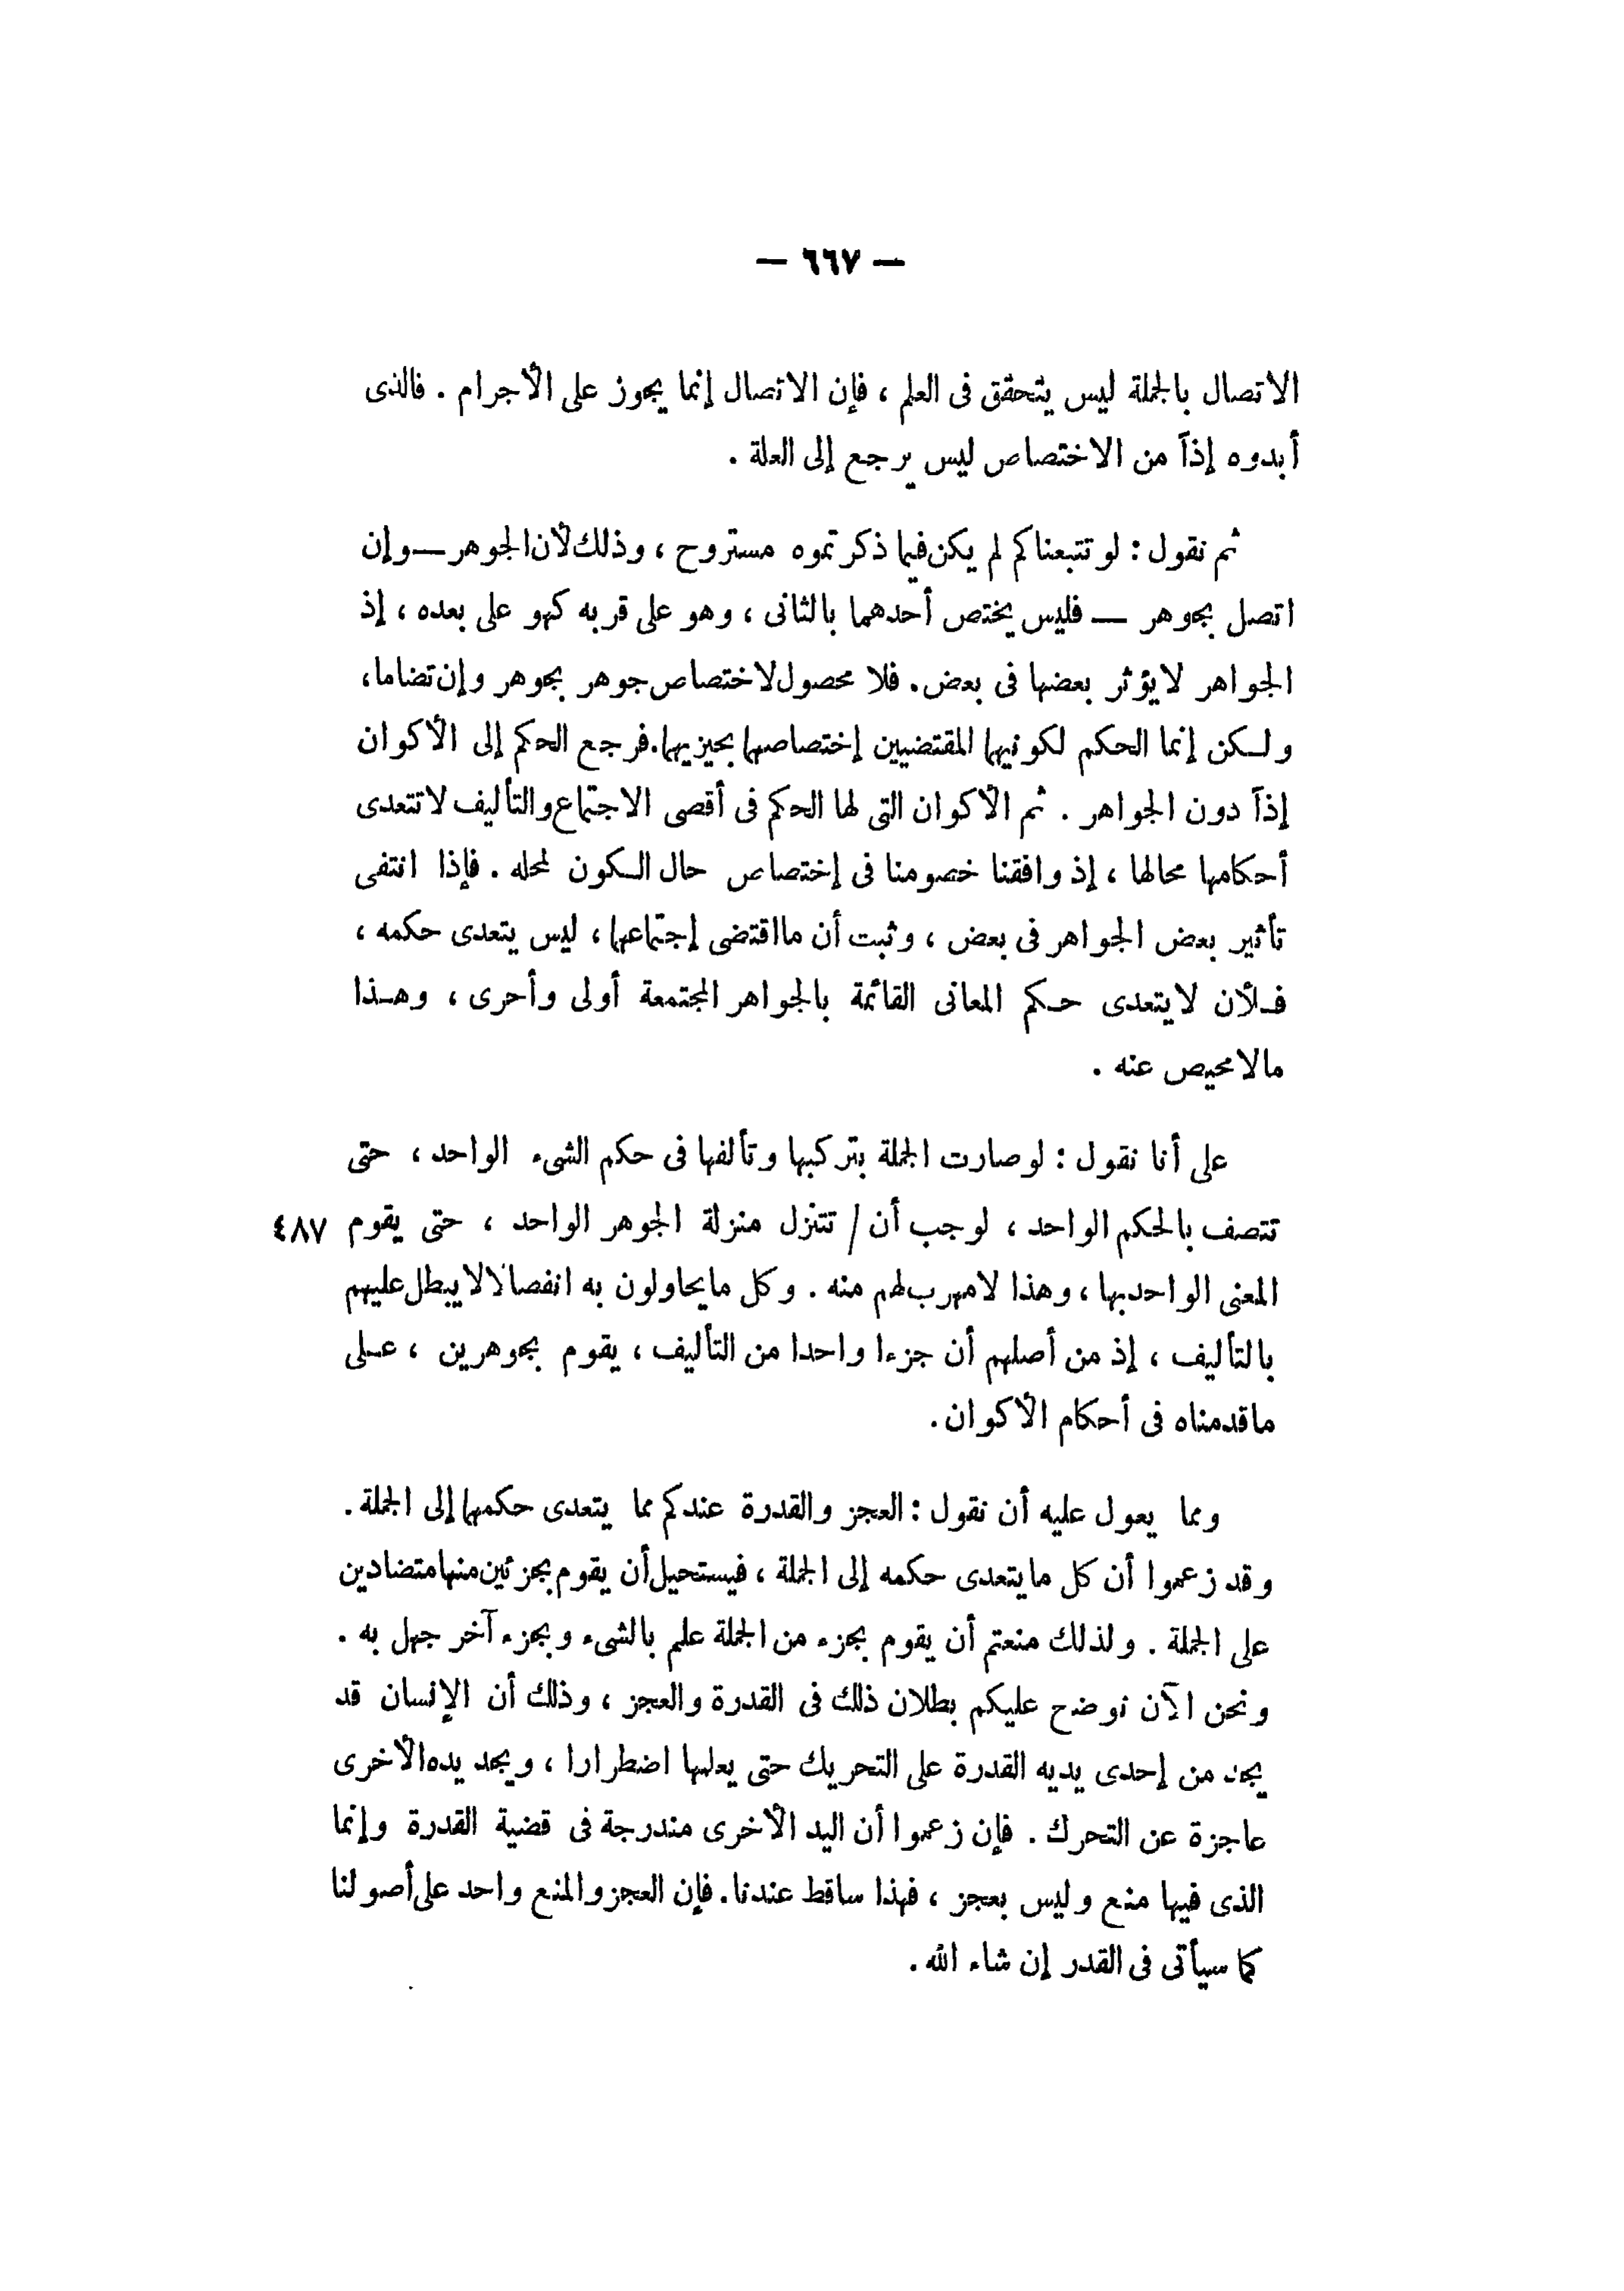 — ٦٦٧ —
الاتصال بالجملة ليس يتحقق فى العلم ، فإن الاتصال إنما يجوز على الأجرام . فالذى
أبدوه إذاً من الاختصاص ليس يرجع إلى العلة .
ثم نقول : لو تتبعناكم لم يكن فيما ذكرتموه مستروح ، وذلك لأن الجوهر — وإن
اتصل بجوهر — فليس يختص أحدهما بالثانى ، وهو على قربه كهو على بعده ، إذ
الجواهر لا يؤثر بعضها فى بعض . فلا محصول لاختصاص جوهر بجوهر وإن تضاما ،
ولكن إنما الحكم لكونيهما المقتضيين إختصاصهما بحيزيهما . فرجع الحكم إلى الأكوان
إذاً دون الجواهر . ثم الأكوان التى لها الحكم فى أقصى الاجتماع والتأليف لا تتعدى
أحكامها محالها ، إذ وافقنا خصومنا فى إختصاص حال الكون لمحله . فإذا انتفى
تأثير بعض الجواهر فى بعض ، وثبت أن ما اقتضى إجتماعهما ، ليس يتعدى حكمه ،
فلأن لا يتعدى حكم المعانى القائمة بالجواهر المجتمعة أولى وأحرى ، وهذا
مالا محيص عنه .
على أنا نقول : لو صارت الجملة بتركبها وتألفها فى حكم الشىء الواحد ، حتى
تتصف بالحكم الواحد ، لوجب أن / تتنزل منزلة الجوهر الواحد ، حتى يقوم ٤٨٧
المعنى الواحد بها ، وهذا لا مهرب لهم منه . وكل ما يحاولون به انفصالا لا يبطل عليهم
بالتأليف ، إذ من أصلهم أن جزءا واحدا من التأليف ، يقوم بجوهرين ، على
ما قدمناه فى أحكام الأكوان .
ومما يعول عليه أن نقول : العجز والقدرة عندكم مما يتعدى حكمهما إلى الجملة .
وقد زعموا أن كل ما يتعدى حكمه إلى الجملة ، فيستحيل أن يقوم بجزئين منها متضادين
على الجملة . ولذلك منعتم أن يقوم بجزء من الجملة علم بالشىء وبجزء آخر جهل به .
ونحن الآن نوضح عليكم بطلان ذلك فى القدرة والعجز ، وذلك أن الإنسان قد
يجد من إحدى يديه القدرة على التحريك حتى يعلمها اضطرارا ، ويجد يده الأخرى
عاجزة عن التحرك . فإن زعموا أن اليد الأخرى مندرجة فى قضية القدرة وإنما
الذى فيها منع وليس بعجز ، فهذا ساقط عندنا . فإن العجز والمنع واحد على أصولنا
كما سيأتى فى القدر إن شاء الله .